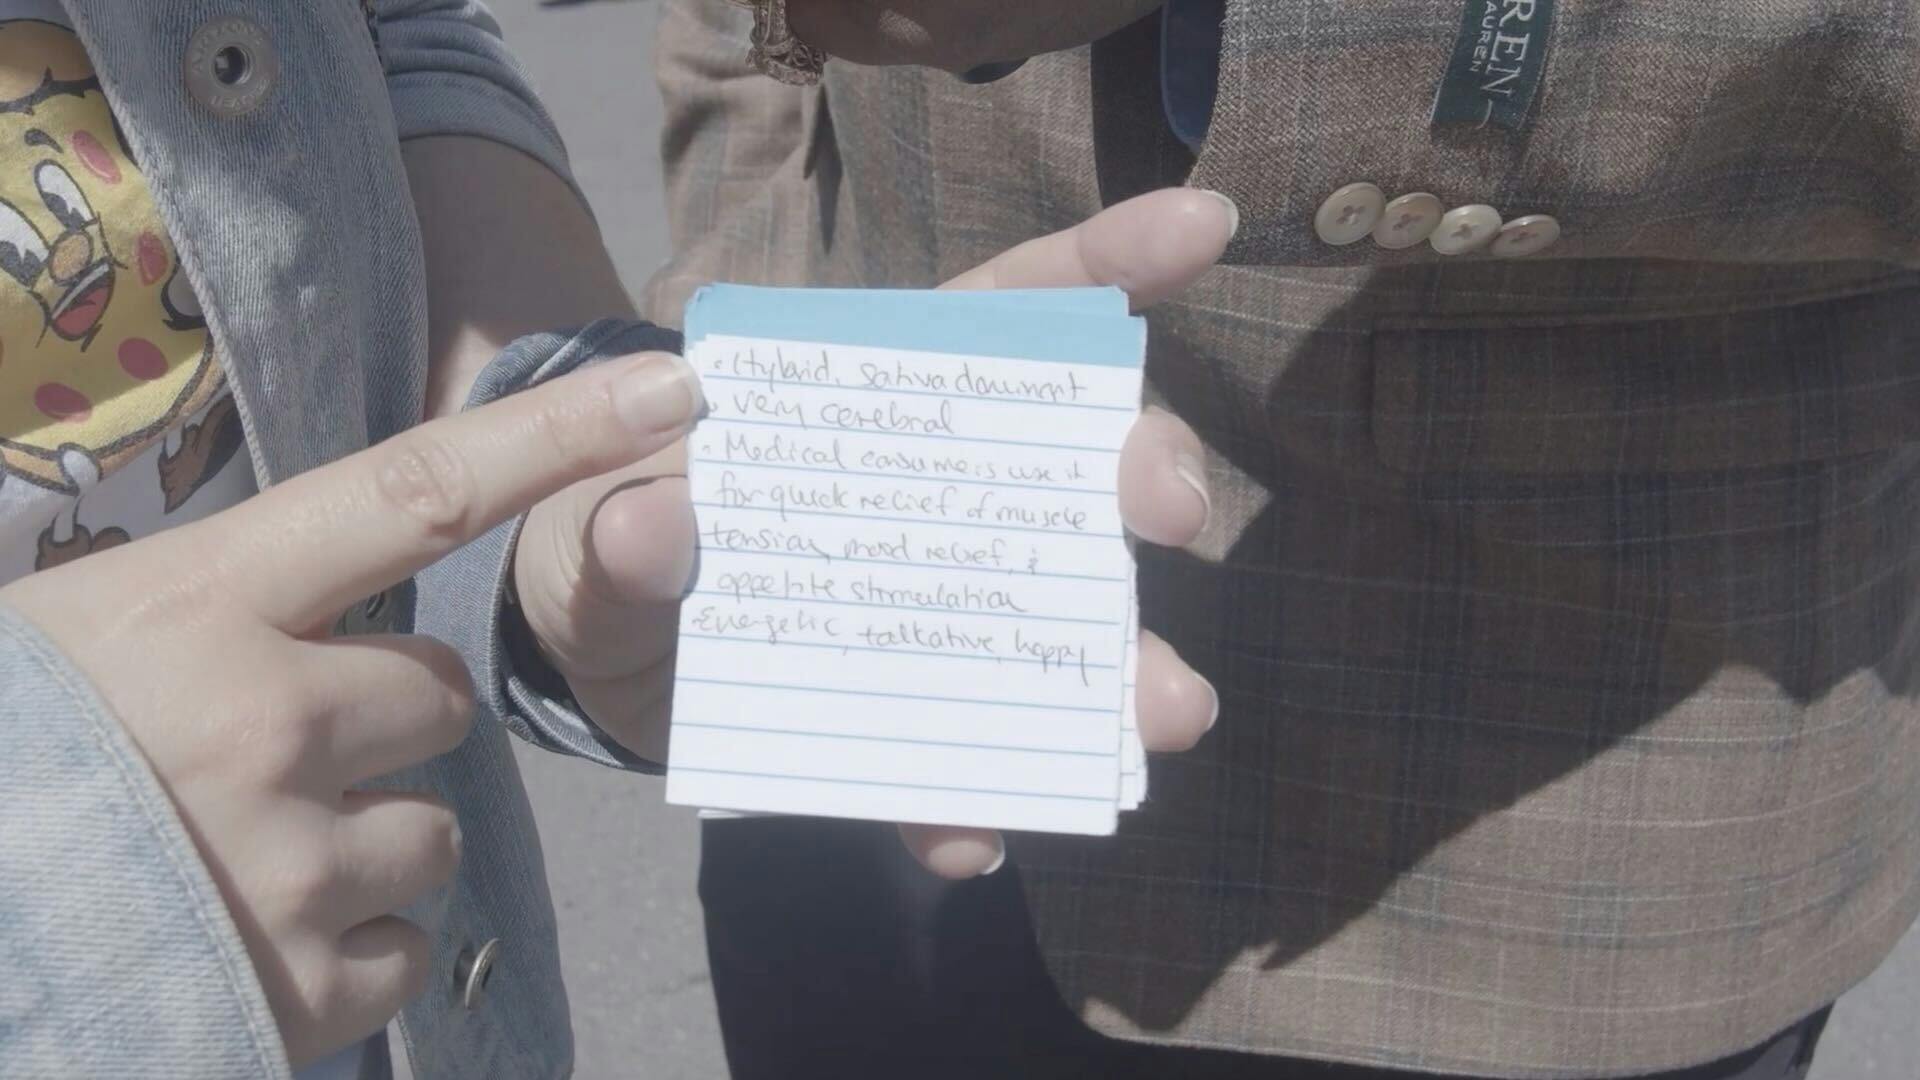 REN
AUREN
• Hybrid, sativa dominant
• very cerebral
• Medical consumers use it
for quick relief of muscle
tension, mood relief, &
appetite stimulation
Energetic, talkative, happy